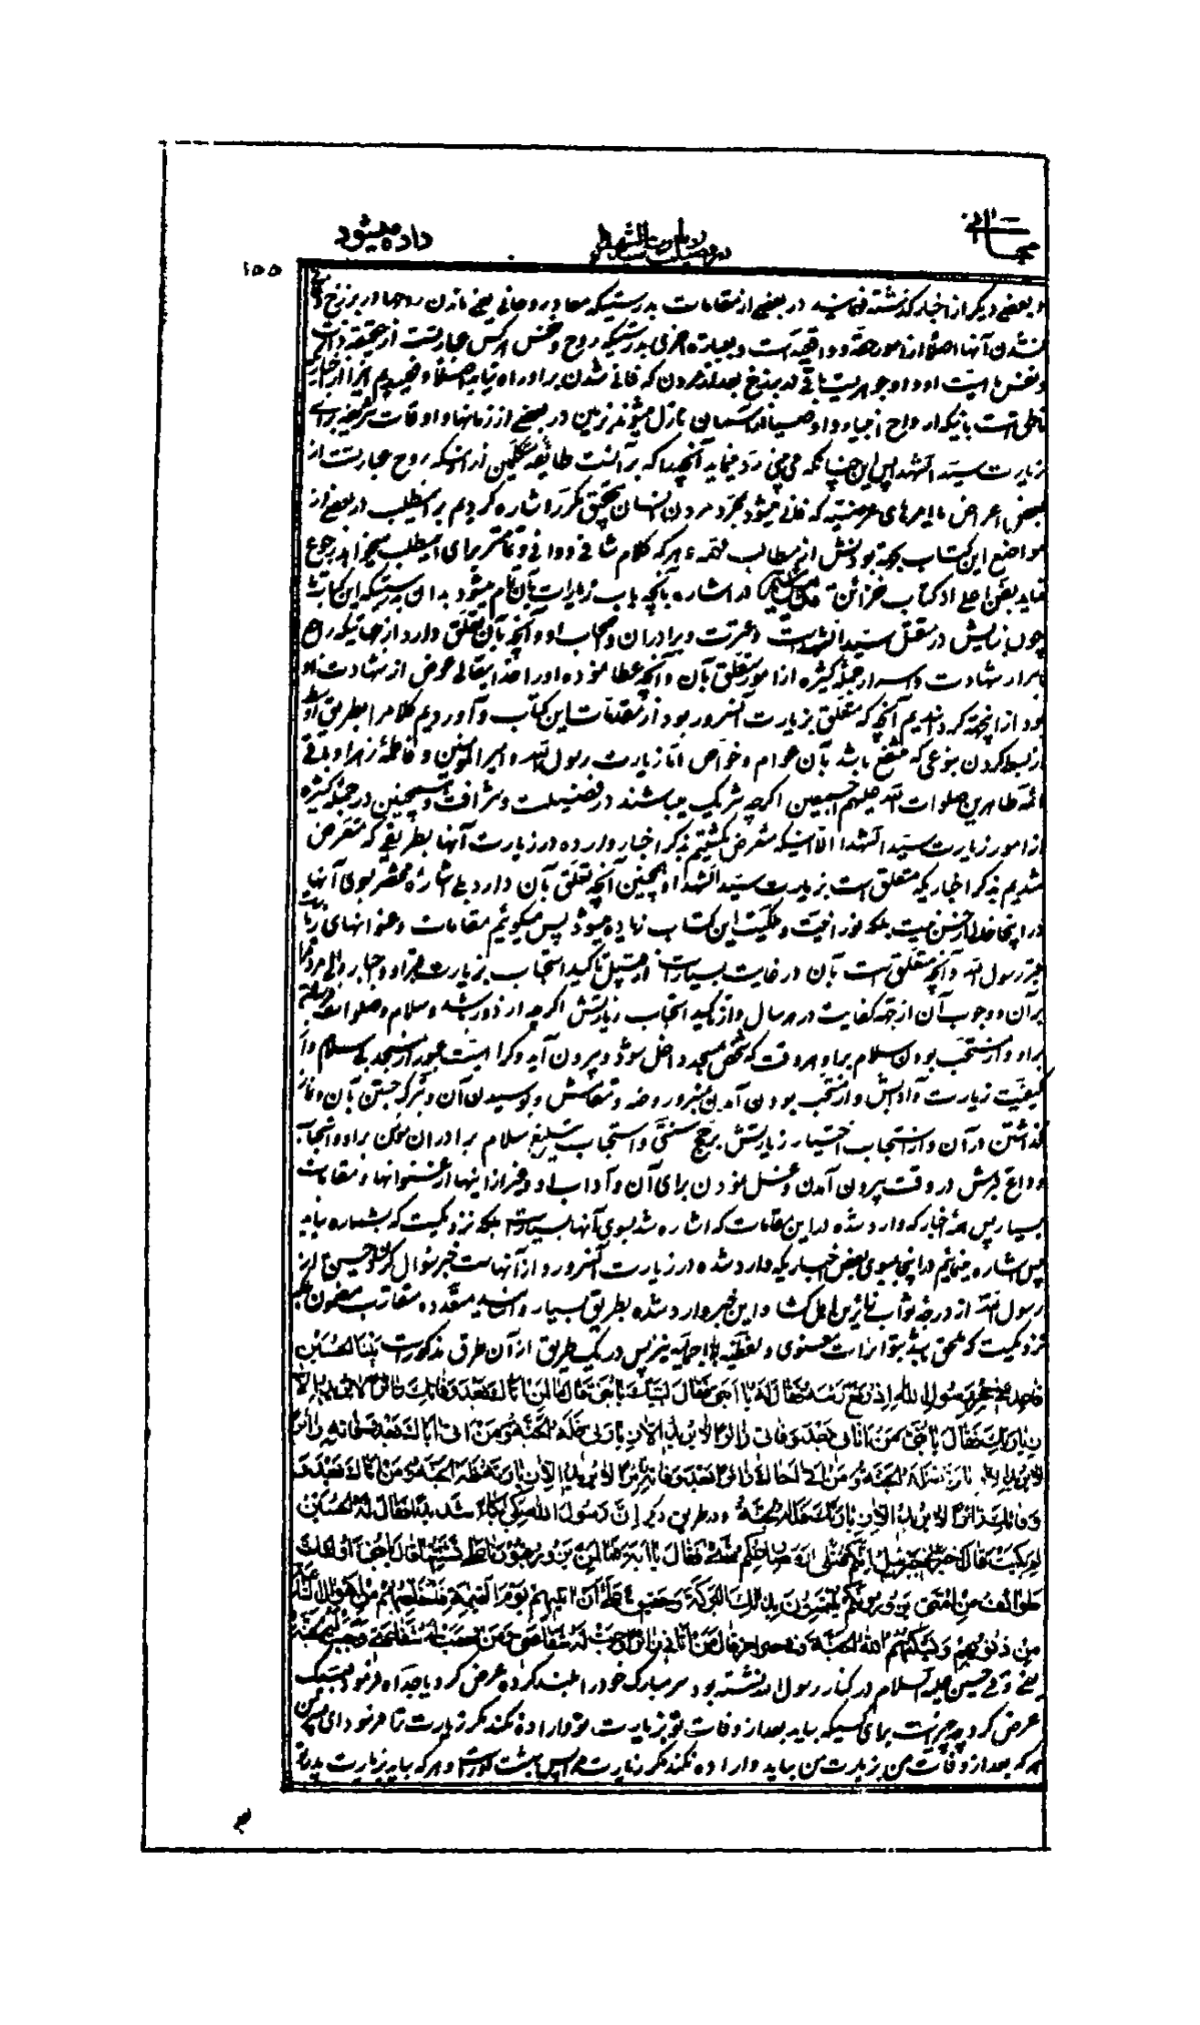 مجانی
داده میشود
۱۵۵
و بعضی دیگر از اخبار گذشته در بعضی از مقامات بدرستیکه معاد روحانی یعنی ماندن روحها در برزخ و
نشدن آنها اصلا از امور حقه و واقعیه است و بعبارة اخری بدرستیکه روح و نفس هر کس عبارتست از حقیقة ذات
و نفس ماهیت او و جوهریست باقی در برزخ بعد از مردن که فانی شدن بر او راه نیابد اصلا و
ناطق است باینکه ارواح انبیاء و اوصیا از آسمان نازل میشوند بزمین در بعضی از زمانها و اوقات شریفه برای
زیارت سید الشهدا پس این چنانکه می بینی رد مینماید آنچه را که بر آنست طایفه متکلمین از اینکه روح عبارتست از
بعض اعراض یا امرهای عرضیه که فانی میشود بمجرد مردن انسان مکرر اشاره کردیم بر این مطلب در بعضی از
مواضع این کتاب بجهة بودنش از مطالب مهمه و هر که کلام شافی و وافی برای این مطلب میخواهد رجوع
نماید بفن اعلی از کتاب خزائن در اشاره بآنچه باب زیارات بآن تمام میشود بدان بدرستیکه این کتاب
چون بنایش در مقتل سید الشهداست و عترت و برادران و اصحاب او و آنچه بآن تعلق دارد از جهاتیکه راجع
باسرار شهادت و اسرار جمله کثیره از امور متعلق بآن و آنچه عطا نموده او را خدایتعالی عوض از شهادت او
بود از اینجهة گردانیدیم آنچه که متعلق بزیارت آنسرور بود از مقدمات این کتاب و آوردیم کلام را بطریق اوسط
از بسط کردن بنوعی که منتفع باشد بآن عوام و خواص اما زیارت رسول الله و امیر المؤمنین و فاطمه زهرا و باقی
ائمه طاهرین صلوات الله علیهم اجمعین اگرچه شریک میباشند در فضیلت و شرافت و همچنین در جمله کثیره
از امور زیارت سید الشهدا الا اینکه متعرض نگشتیم بذکر اخبار وارده در زیارت آنها بطریقی که متعرض
شدیم بذکر اخباریکه متعلق است بزیارت سید الشهداء و همچنین آنچه تعلق بآن دارد بلی اشاره مختصر بسوی آنها
در اینجا خالی از حسن نیست بلکه نورانیت و ملکیت این کتاب زیاده میشود پس میگوئیم مقامات و عنوانهای زیارت
قبر رسول الله و آنچه متعلق است بآن در غایت بسیاریست از قبیل تاکید استحباب زیارت قبر او و اجبار والی مردم را
بر آن و وجوب آن از جهة کفایت در هر سال و از تاکید استحباب زیارتش اگرچه از دور باشد و سلام و صلوات فرستادن
بر او و از مستحب بودن سلام بر او هر وقت که شخص بمسجد داخل شود و بیرون آید و کراهیت عبور از مسجد بی سلام و از
کیفیت زیارت و آدابش و از مستحب بودن آمدن بمنبر و روضه و مقامش و بوسیدن آن و تبرک جستن بآن و نماز
گذاشتن در آن و از استحباب اختیار زیارتش بر حج سنتی و استحباب تبلیغ سلام برادران مؤمن بر او و استحباب
وداع قبرش در وقت بیرون آمدن و غسل نمودن برای آن و آداب او و غیر از اینها از عنوانها و مقامات
بسیار پس اخبار که وارد شده در این مقامات که اشاره شد بسوی آنها بسیار است بلکه نزدیکست که بشماره نیاید
پس اشاره مینمائیم در اینجا بسوی بعض اخباریکه وارد شده در زیارت آنسرور و از آنهاست خبر سؤال کردن حسین از
رسول الله از درجه ثواب زائرین اهل کسا و این خبر وارد شده بطریق بسیار و اسانید متعدده متقارب مضمون بلکه
نزدیکست که ملحق باشد بتواترات معنوی و لفظیه اجمالیه نیز پس در یک طریق از آن طرق مذکور است بینا الحسین
قاعد فی حجر رسول الله اذ رفع رأسه فقال له یا ابه فقال لبیک یا بنی قال ما لمن اتاک بعد وفاتک زائرا لا یرید الا
زیارتک فقال یا بنی من اتانی بعد وفاتی زائرا لا یرید الا زیارتی فله الجنة و من اتی اباک بعد وفاته زائرا
لا یرید الا زیارته فله الجنة و من اتی اخاک زائرا بعد وفاته لا یرید الا زیارته فله الجنة و من اتاک بعد
وفاتک زائرا لا یرید الا زیارتک فله الجنة و در طریق دیگر ان رسول الله بکی بکاء شدیدا فقال له الحسین
لم بکیت قال اخبرنی جبرئیل انکم قتلی و مصارعکم شتی فقال یا ابه فما لمن یزور قبورنا علی تشتتها قال یا بنی اولئک
طوائف من امتی یزورونکم یلتمسون بذلک البرکة و حقیق علی ان آتیهم یوم القیمة فاخلصهم من اهوال الساعة
من ذنوبهم و یسکنهم الله الجنة
یعنی وقتی حسین علیه السلام در کنار رسول الله نشسته بود سر مبارک خود را بلند کرده عرض کرد یا جداه فرمود لبیک
عرض کرد چه چیز است برای کسیکه بیاید بعد از وفات تو بزیارت تو و اراده نکند مگر زیارت ترا فرمود ای پسر من
هر که بعد از وفات من بزیارت من بیاید و اراده نکند مگر زیارت مرا پس بهشت او راست و هر که بیاید بزیارت پدر تو